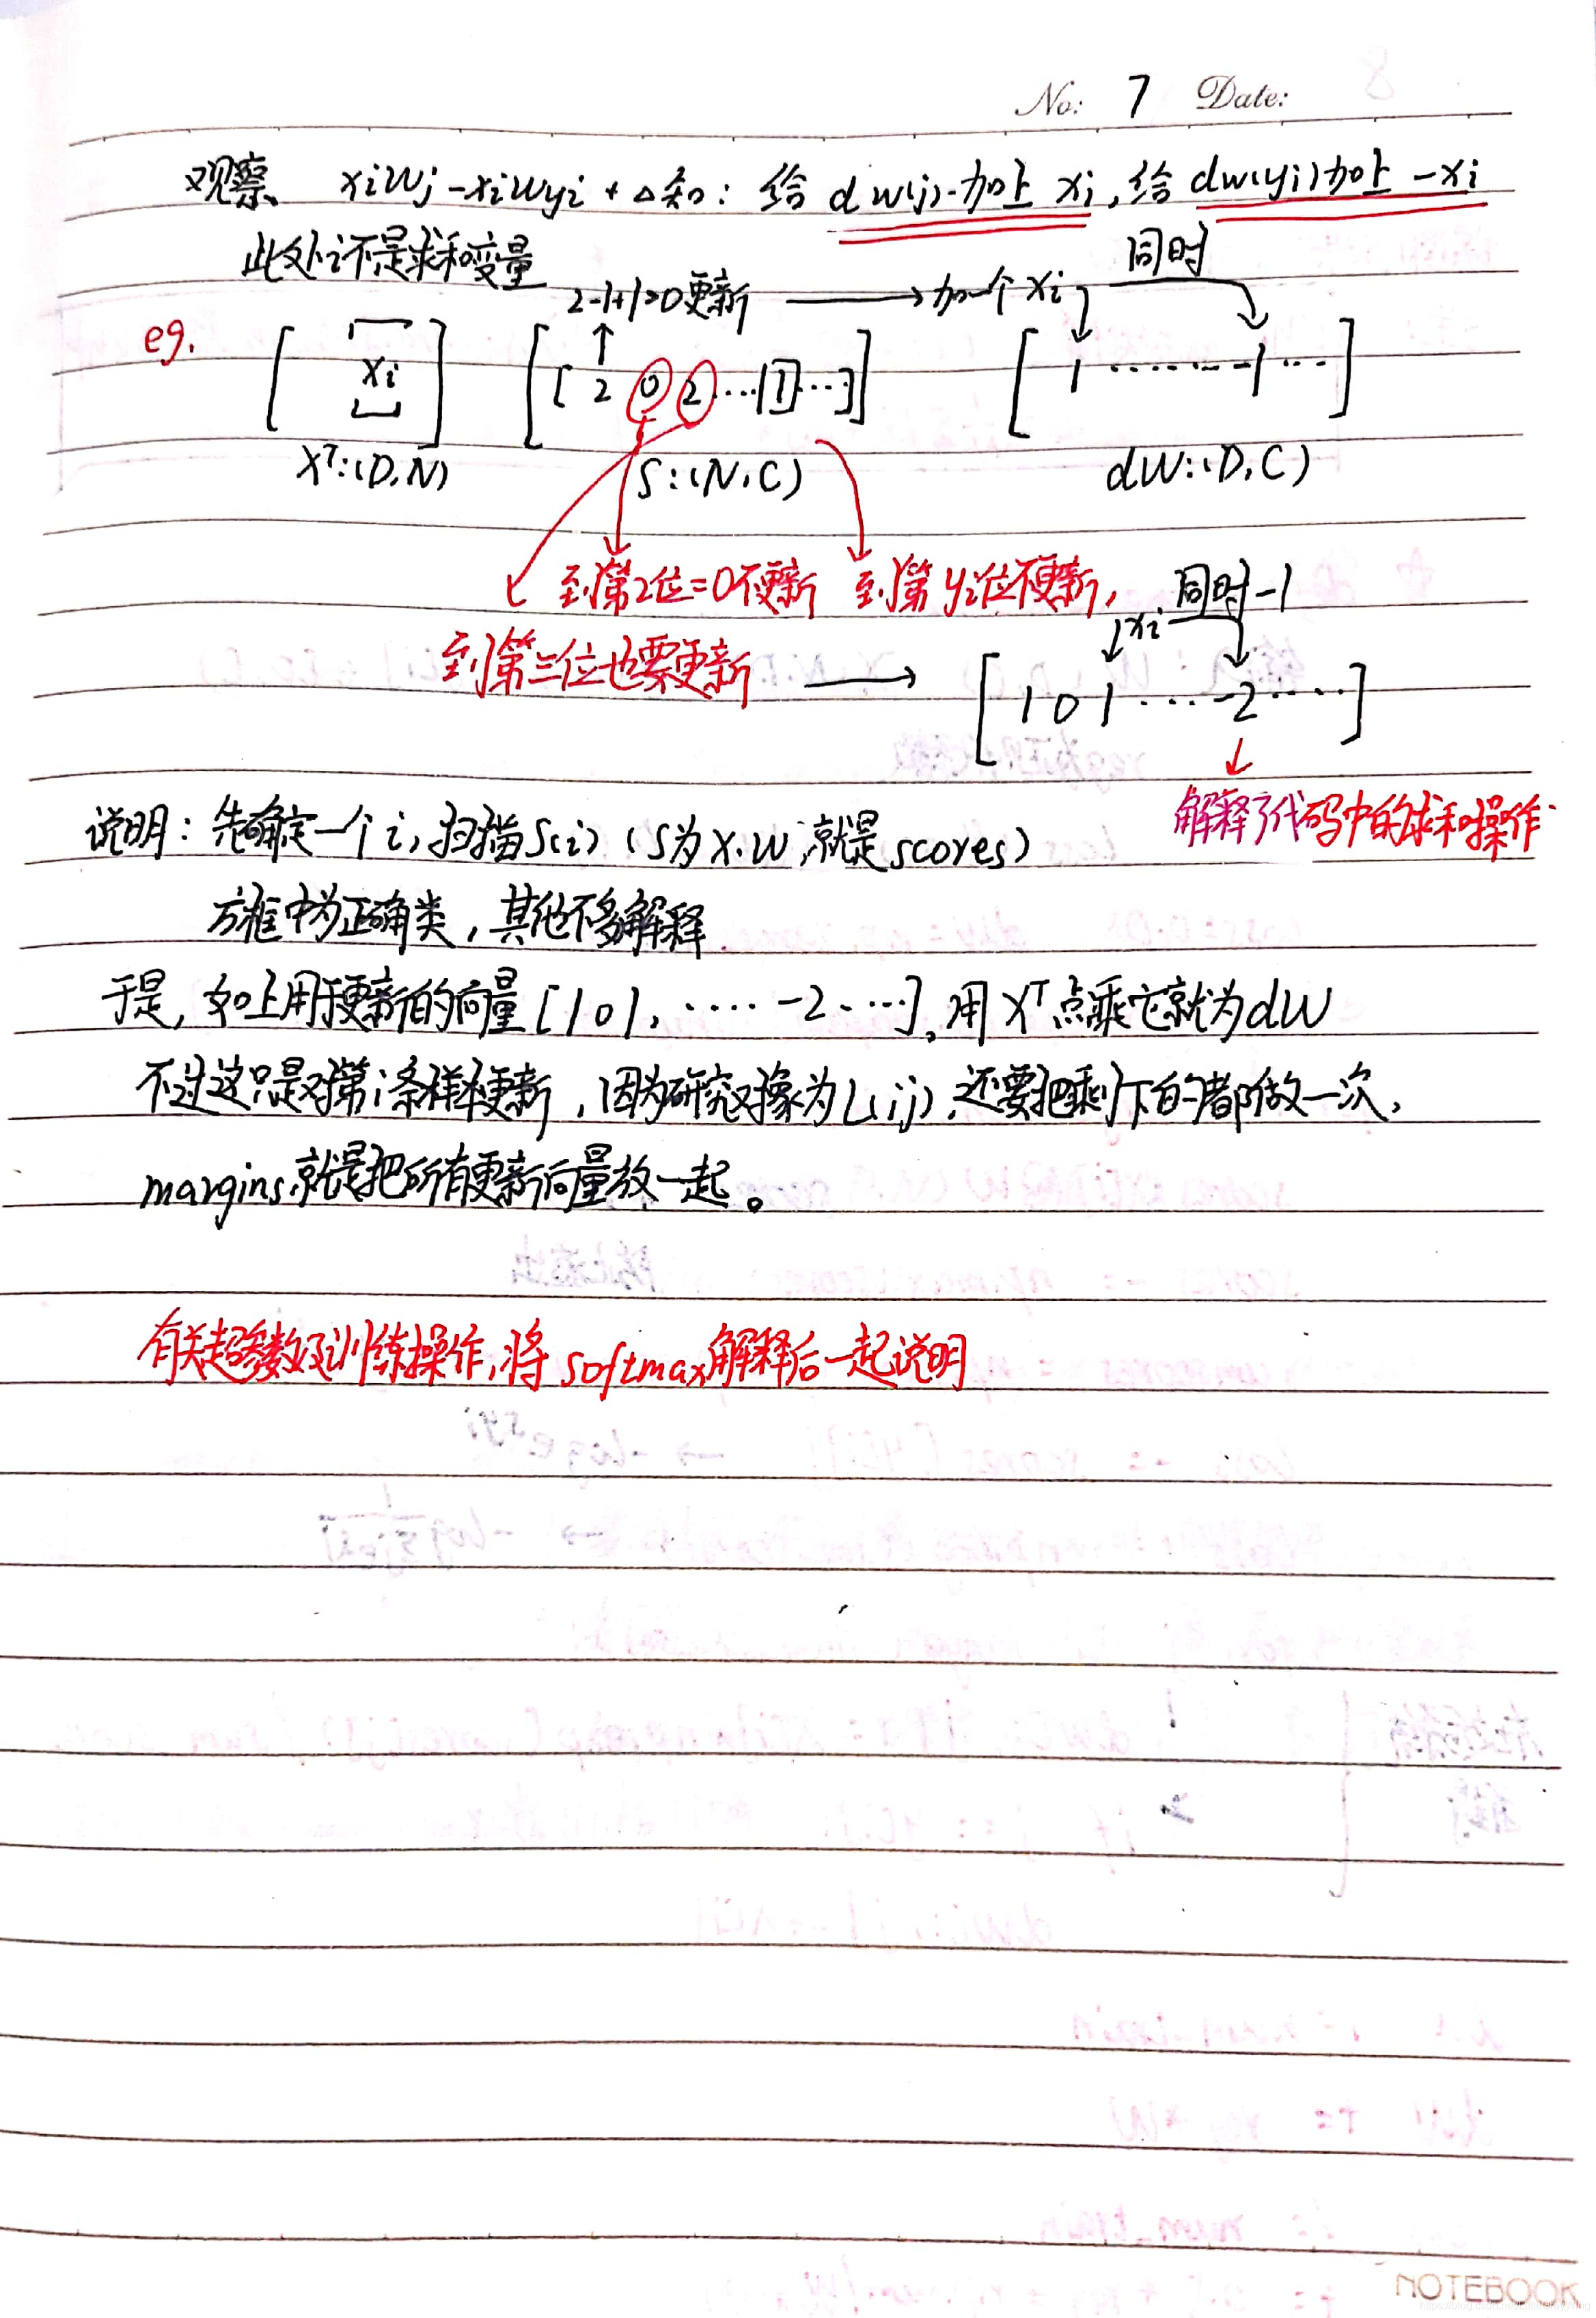 No: 7 Date:
观察 xiwj-xiwyi+△知：给dw(j)加上 xi，给dw(yi)加上 -xi
此处i不是求和变量
同时
2-1+1>0更新 → 加一个 xi
eg.
[ xi ] [ [ 2 0 2 ... [1] ... ] ] [ 1 ....... -1 ... ]
X^T:(D,N) S:(N,C) dW:(D,C)
到第2位=0不更新 到第yi位不更新，
同时-1
xi
到第三位也要更新 → [ 1 0 1 .... -2 ..... ]
解释了代码中的求和操作
说明：先确定一个i，扫描S(i)（S为X.W，就是scores）
方框中为正确类，其他不多解释.
于是，如上用于更新的向量[1 0 1, .... -2 ....]，用X^T点乘它就为dW
不过这只是对第i条样本更新，因为研究对象为L(ij)，还要把剩下的都做一次，
margins就是把所有更新向量放一起。
有关超参数及训练操作，将softmax解释后一起说明
NOTEBOOK